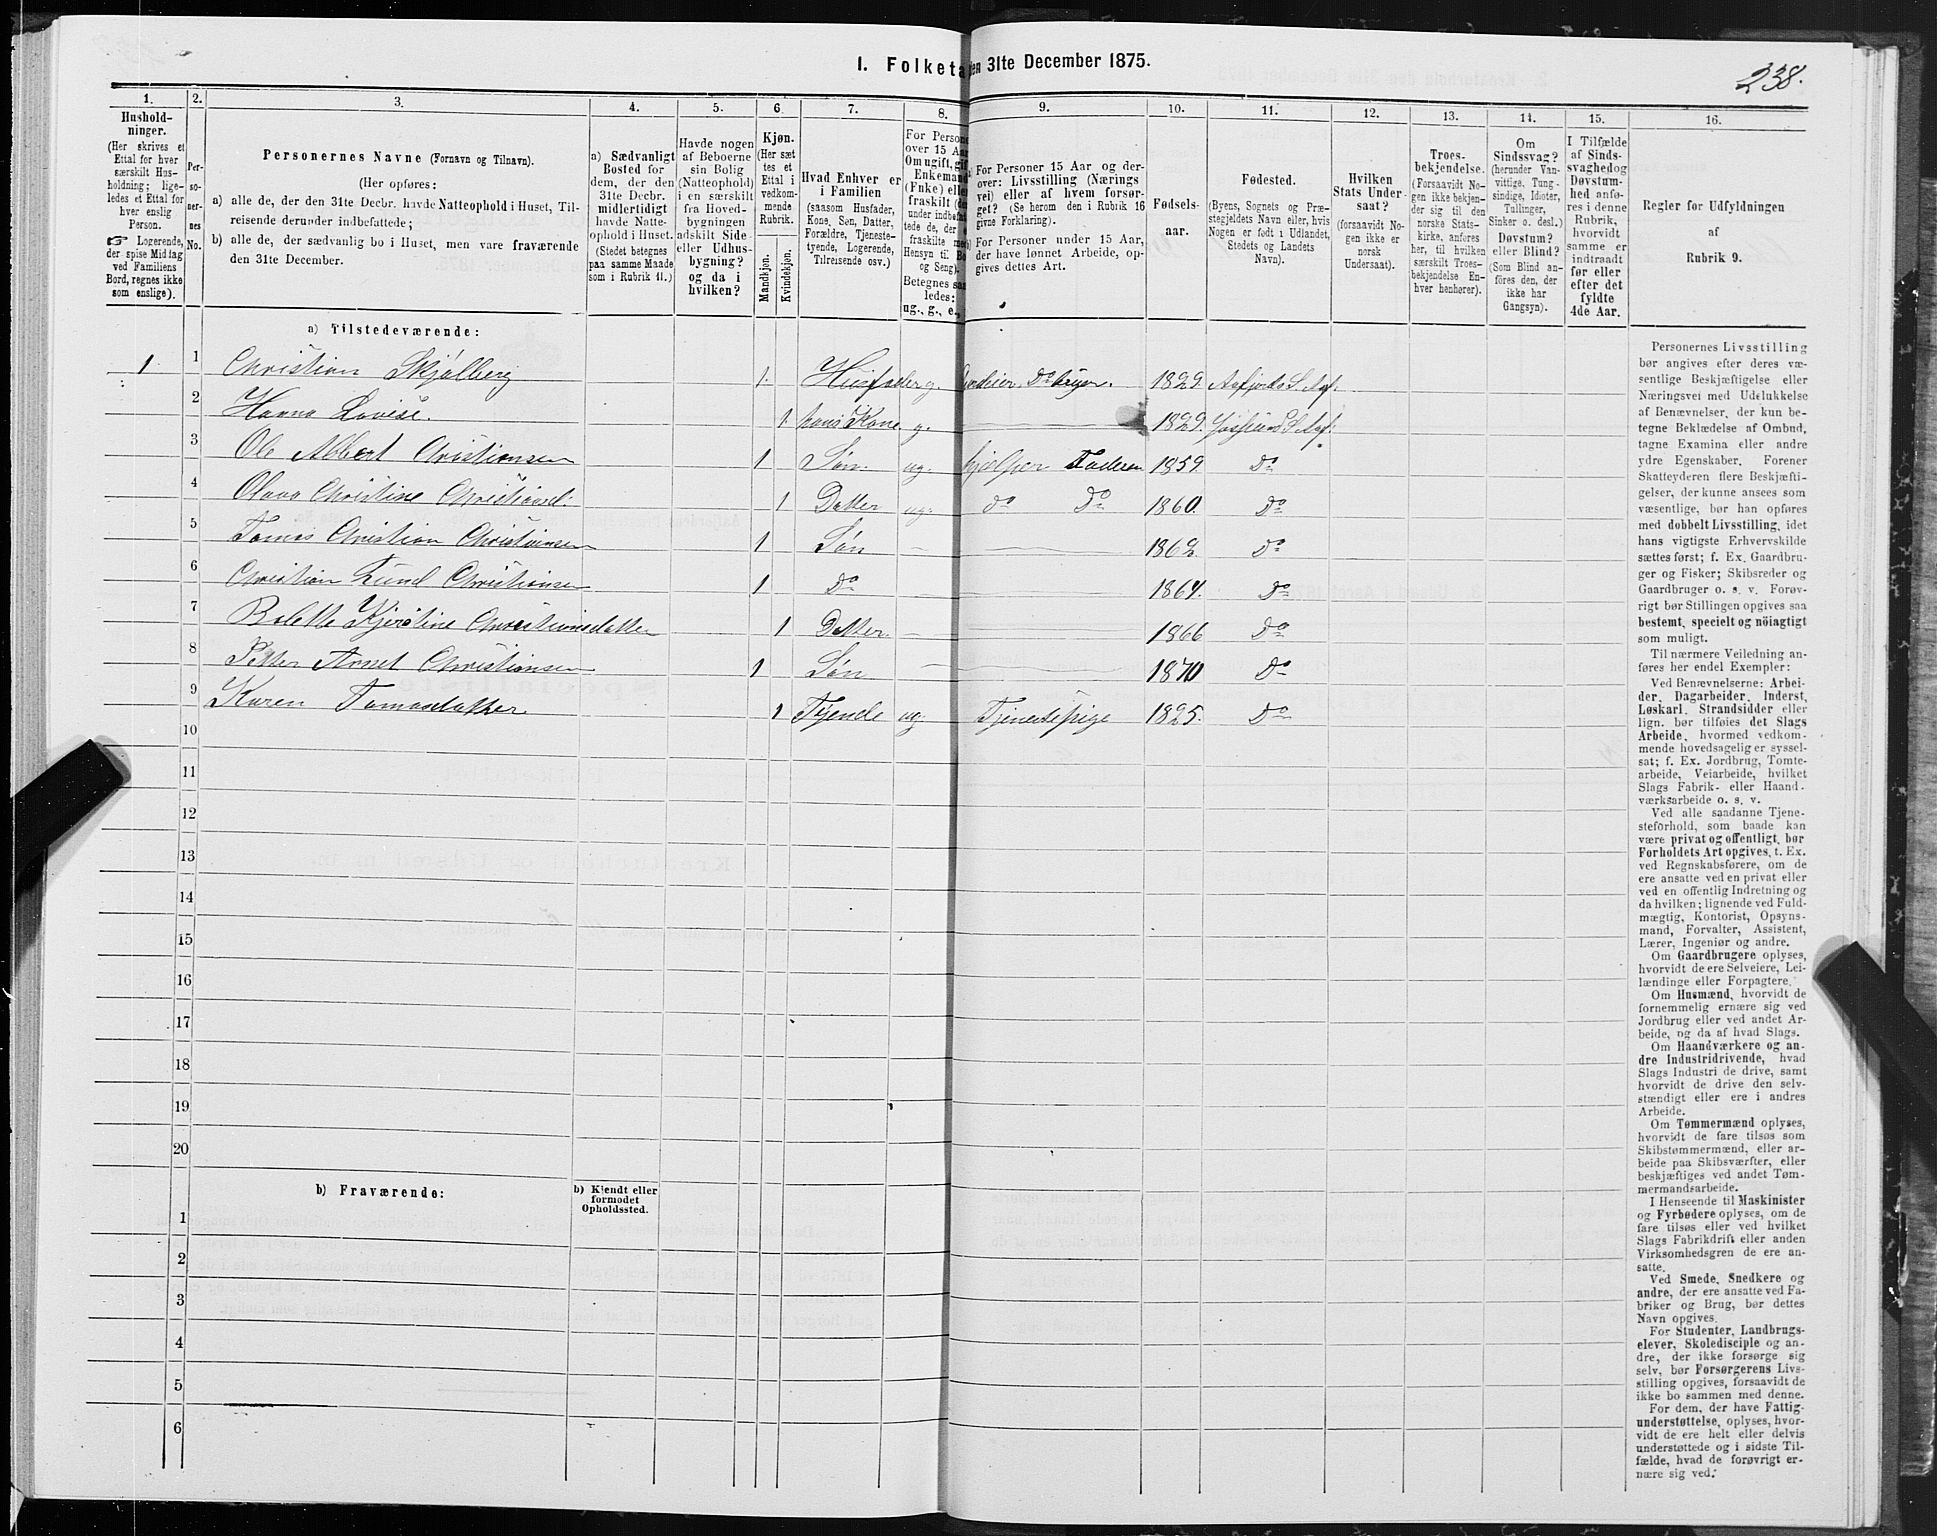 I. Folketa
den 31te December 1875.
238.
1. 2. 3. 4. 5. 6. 7. 8. 9. 10. 11. 12. 13. 14. 15. 16.
Hushold-
ninger.
(Her skrives et
Ettal for hver
særskilt Hus-
holdning; lige-
ledes et Ettal for
hver enslig
Person.
☞ Logerende,
der spise Middag
ved Familiens
Bord, regnes ikke
som enslige).
Per-
so-
ner-
nes
No.
Personernes Navne (Fornavn og Tilnavn).
(Her opføres:
a) alle de, der den 31te Decbr. havde Natteophold i Huset, Til-
reisende derunder indbefattede;
b) alle de, der sædvanlig bo i Huset, men vare fraværende
den 31te December.
a) Sædvanligt
Bosted for
dem, der den
31te Decbr.
midlertidigt
havde Natte-
ophold i Huset.
(Stedet betegnes
paa samme Maade
som i Rubrik 11.)
Havde nogen
af Beboerne
sin Bolig
(Natteophold)
i en særskilt
fra Hoved-
bygningen
adskilt Side-
eller Udhus-
bygning?
og da i
hvilken?
Kjøn.
(Her sæt-
tes et
Ettal i
vedkom-
mende
Rubrik.
Mandkjøn.
Kvindekjøn.
Hvad Enhver er
i Familien
(saasom Husfader,
Kone, Søn, Datter,
Forældre, Tjeneste-
tyende, Logerende,
Tilreisende osv.)
For Persone
over 15 Aa
Om ugift, gif
Enkemand
(Enke) eller
fraskilt
under indbefat
tede de, der
fraskilte
Hensyn til Bo
og Seng).
Betegnes saa
ledes:
ug., g., e.,
For Personer 15 Aar og der-
over: Livsstilling (Nærings
vei) eller af hvem forsør-
get? (Se herom den i Rubrik 16
givne Forklaring).
For Personer under 15 Aar,
der have lønnet Arbeide, op-
gives dettes Art.
Fødsels-
aar.
Fødested.
(Byens, Sognets og Præ-
stegjeldets Navn eller, hvis
Nogen er født i Udlandet,
Stedets og Landets
Navn).
Hvilken
Stats Under-
saat?
(forsaavidt No-
gen ikke er
norsk
Undersaat).
Troes-
bekjendelse.
(Forsaavidt No-
gen ikke bekjen-
der sig til den
norske Stats-
kirke, anføres
her, til hvilken
særskilt Troes-
bekjendelse En-
hver henhører).
Om
Sindssvag?
(herunder Van-
vittige, Tung-
sindige, Idioter,
Tullinger,
Sinker o. desl.)
Døvstum?
eller Blind?
(Som Blind an-
føres den, der
ikke har
Gangsyn).
I Tilfælde
af Sinds-
svaghed og
Døvstum-
hed anfø-
res i denne
Rubrik,
hvorvidt
samme er
indtraadt
før eller
efter det
fyldte
4de Aar.
Regler for Udfyldningen
af
Rubrik 9.
a) Tilstedeværende:
1 1 Christian Skjølberg 1. Husfader g. Gardeier 1829. Aafjords S. Aaf.
2 Hanna Lovise. 1. hans Kone g. 1829. Jøssund S. Aaf.
3 Ole Albert Christiansen 1 Søn. ug. hjelper Faderen 1859. Do
4 Olava Christine Christiansd. 1 Datter ug. do Do 1860. Do
5 Tomas Christian Christiansen 1 Søn 1862. Do
6 Christian Lund Christiansen 1 Do 1864. Do
7 Bolette Kjerstine Christiansdatter 1 Datter. 1866 Do
8 Petter Arnet Christiansen 1 Søn 1870 Do
9 Karen Tomasdatter. 1 Tjende ug. Tjenestepige 1825. Do
10
11
12
13
14
15
16
17
18
19
20
b) Fraværende:
b) Kjendt eller
formodet
Opholdssted.
1
2
3
4
5
6
Personernes Livsstilling
bør angives efter deres væ-
sentlige Beskjæftigelse eller
Næringsvei med Udelukkelse
af Benævnelser, der kun be-
tegne Beklædelse af Ombud,
tagne Examina eller andre
ydre Egenskaber. Forener
Skatteyderen flere Beskjæfti-
gelser, der kunne ansees som
væsentlige, bør han opføres
med dobbelt Livsstilling, idet
hans vigtigste Erhvervskilde
sættes først; f. Ex. Gaardbru-
ger og Fisker; Skibsreder og
Gaardbruger o. s. v. Forøv-
rigt bør Stillingen opgives saa
bestemt, specielt og nöiagtigt
som muligt.
Til nærmere Veiledning an-
føres her endel Exempler:
Ved Benævnelserne: Arbei-
der, Dagarbeider, Inderst,
Løskarl, Strandsidder eller
lign. bør tilføies det Slags
Arbeide, hvormed vedkom-
mende hovedsagelig er syssel-
sat; f. Ex. Jordbrug, Tomte-
arbeide, Veiarbeide, hvilket
Slags Fabrik- eller Haand-
værksarbeide o. s. v.
Ved alle saadanne Tjene-
steforhold, som baade kan
være privat og offentligt, bør
Forholdets Art opgives, t. Ex.
ved Regnskabsførere, om de
ere ansatte ved en privat eller
ved en offentlig Indretning og
da hvilken; lignende ved Fuld-
mægtig, Kontorist, Opsyns-
mand, Forvalter, Assistent,
Lærer, Ingeniør og andre.
Om Gaardbrugere oplyses,
hvorvidt de ere Selveiere, Lei-
lændinge eller Forpagtere.
Om Husmænd, hvorvidt de
fornemmelig ernære sig ved
Jordbrug eller ved andet Ar-
beide, og da af hvad Slags.
Om Haandværkere og an-
dre Industridrivende, hvad
Slags Industri de drive, samt
hvorvidt de drive den selv-
stændigt eller ere i andres
Arbeide.
Om Tømmermænd oplyses,
hvorvidt de fare tilsøs som
Skibstømmermænd, eller ar-
beide paa Skibsværfter, eller
beskjæftiges ved andet Tøm-
mermandsarbeide.
I Henseende til Maskinister
og Fyrbødere oplyses, om de
fare tilsøs eller ved hvilket
Slags Fabrikdrift eller anden
Virksomhedsgren de ere an-
satte.
Ved Smede, Snedkere og
andre, der ere ansatte ved Fa-
briker og Brug, bør dettes
Navn opgives.
For Studenter, Landbrugs-
elever, Skoledisciple og an-
dre, der ikke forsørge sig
selv, bør Forsørgerens Livs-
stilling opgives, forsaavidt de
ikke bo sammen med denne.
For dem, der have Fattig-
understøttelse, oplyses, hvor-
vidt de ere helt eller delvis
understøttede og i sidste Til-
fælde, hvad de forøvrigt er-
nære sig ved.